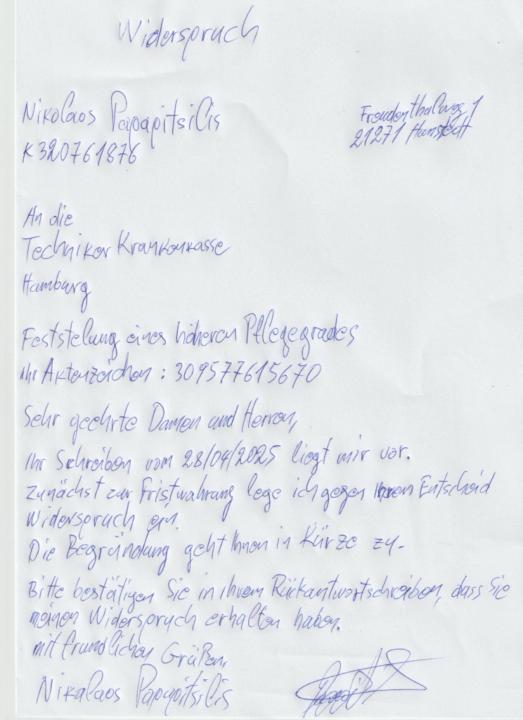 Widerspruch
Nikolaos Papapitsilis
K320761876
Freudenthalweg 1
21271 Hanstedt
An die
Techniker Krankenkasse
Hamburg
Feststelung eines höheren Pflegegrades
Ihr Aktenzeichen : 309577615670
Sehr geehrte Damen und Herren,
Ihr Schreiben vom 28/04/2025 liegt mir vor.
Zunächst zur Fristwahrung lege ich gegen Ihren Entscheid
Widerspruch ein.
Die Begründung geht Ihnen in Kürze zu.
Bitte bestätigen Sie in ihrem Rückantwortschreiben, dass Sie
meinen Widerspruch erhalten haben.
mit frundlichen Grüßen,
Nikolaos Papapitsilis